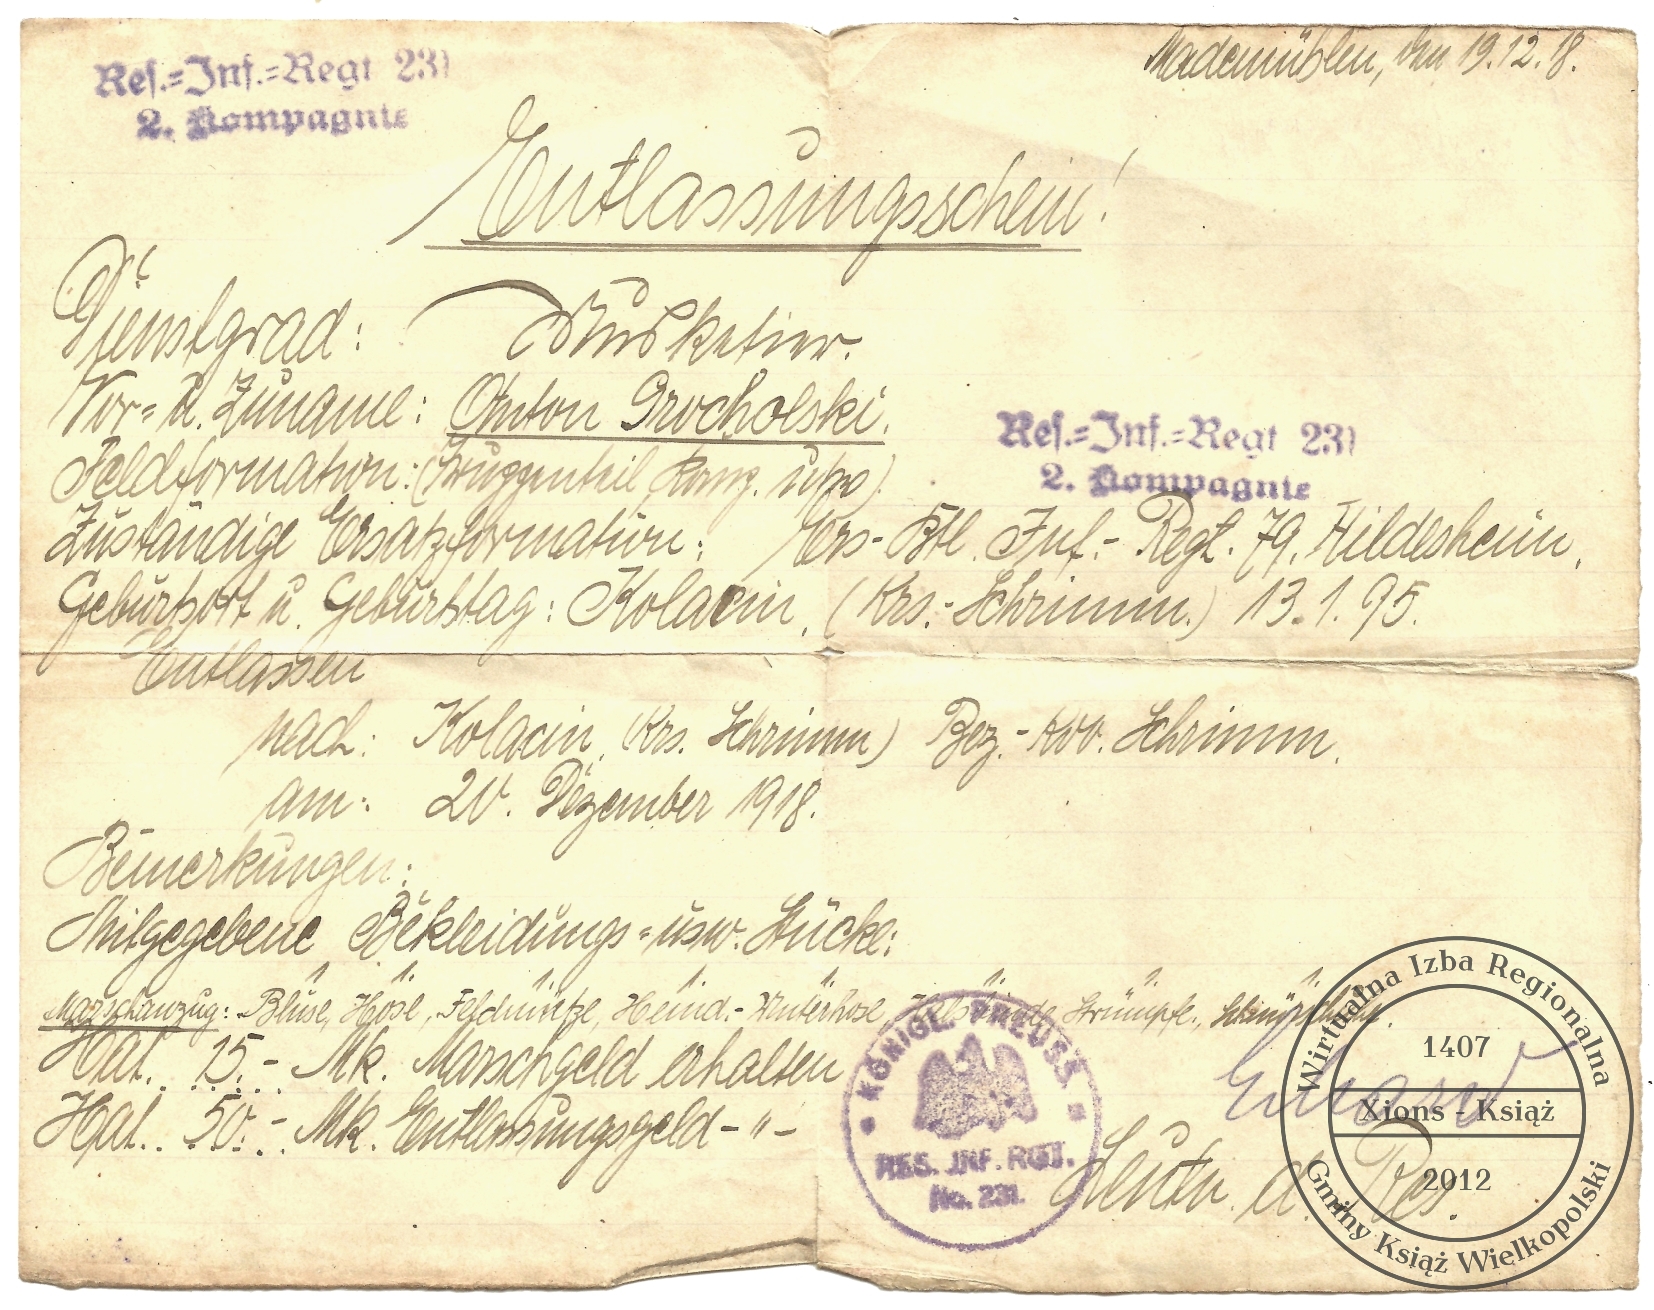 Res.=Inf.=Regt 231
2. Kompagnie
Mademühlen, den 19.12.18.
Entlassungsschein!
Dienstgrad: Musketier.
Vor= u. Zuname: Anton Grocholski.
Feldformation: (Truppenteil, Komp. usw)
Res.=Inf.=Regt 231
2. Kompagnie
Zuständige Ersatzformation: Ers-Btl. Inf.- Regt. 79. Hildesheim.
Geburtsort u. Geburtstag: Kolacin, (Krs.- Schrimm.) 13.1.95.
Entlassen
nach: Kolacin, (Krs. Schrimm) Bez.- Schrimm.
am: 20. Dezember 1918.
Bemerkungen:
Mitgegebene Bekleidungs=usw. Stücke:
Marschanzug: Bluse, Hose, Feldmütze, Hemd.- Unterhose, Halsbinde, Strümpfe, Schnürschuhe.
Hat. 15.- Mk. Marschgeld erhalten
Hat. 50.- Mk. Entlassungsgeld - " -
KÖNIGL. PREUSS.
RES. INF. RGT.
No. 231.
Leutn. d. Res.
Wirtualna Izba Regionalna
1407
Xions - Książ
2012
Gminy Książ Wielkopolski